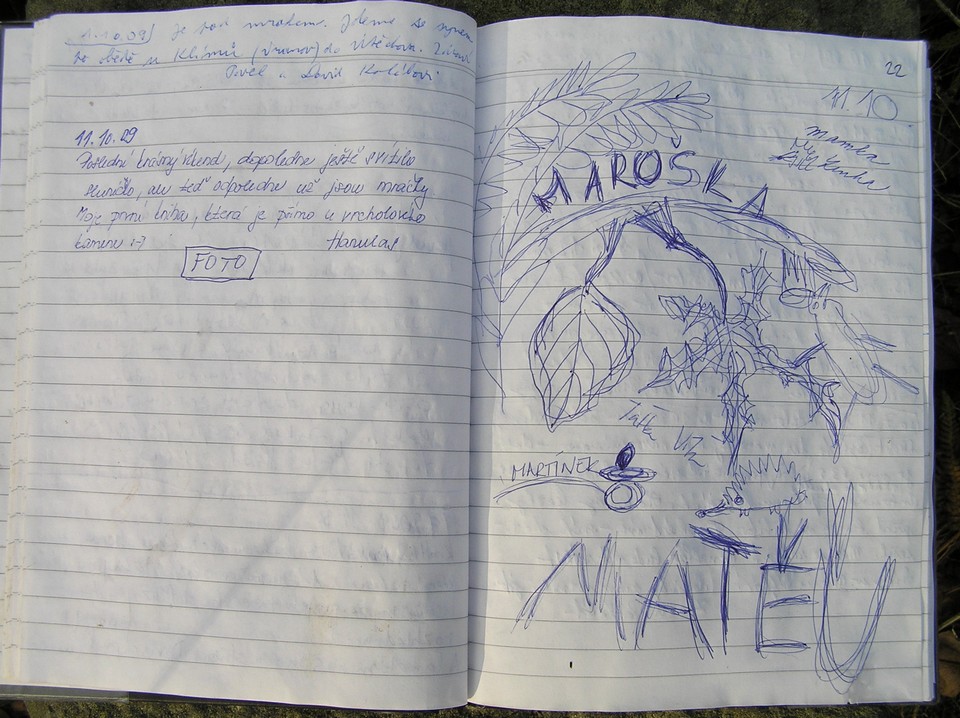 1.10.09 je pod mrakem. Jdeme se synem
po obědě u Klímů do
Pavel a David
11.10.09
Poslední krásný víkend, dopoledne ještě svítilo
sluníčko, ale teď odpoledne už jsou mráčky
Moje první kniha, která je přímo u vrcholového
kamene :-)
Hanulas
FOTO
22
11 10
Mamka
MAROŠKA
Taťka
MARTÍNEK
MATĚJ